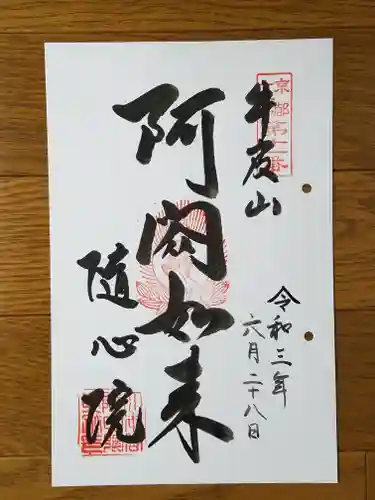 京都第六番
牛皮山
阿閦如来
随心院
令和三年
六月二十八日